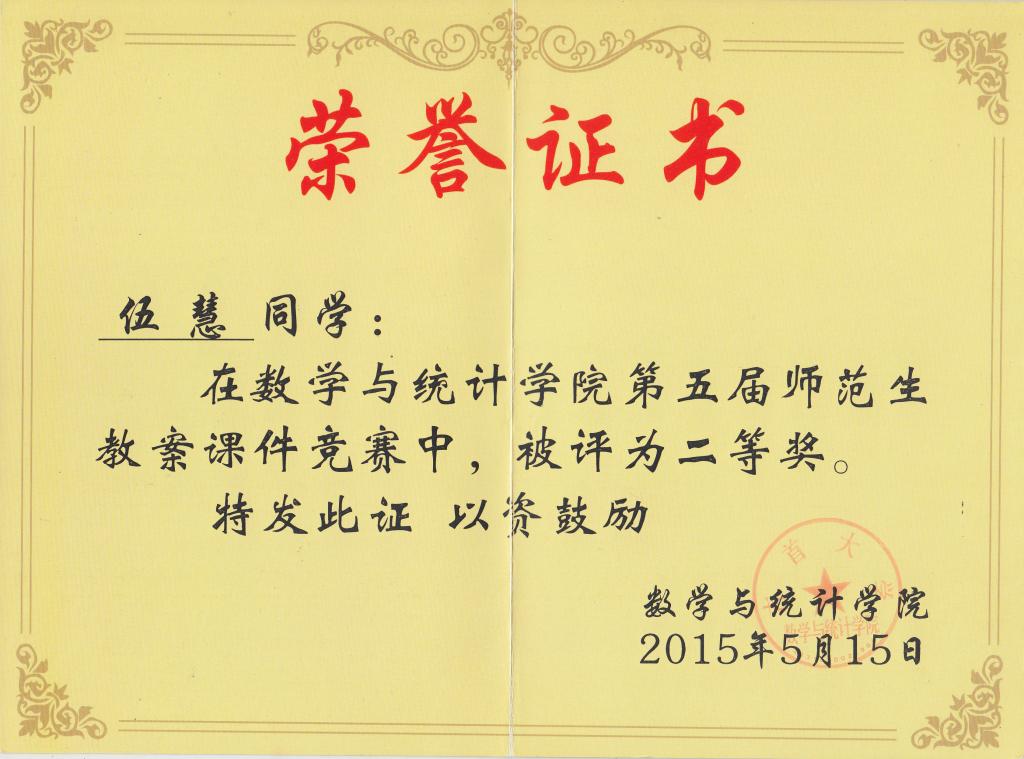 荣誉证书
伍慧同学：
在数学与统计学院第五届师范生
教案课件竞赛中，被评为二等奖。
特发此证 以资鼓励
数学与统计学院
2015年5月15日
首大学
数学与统计学院